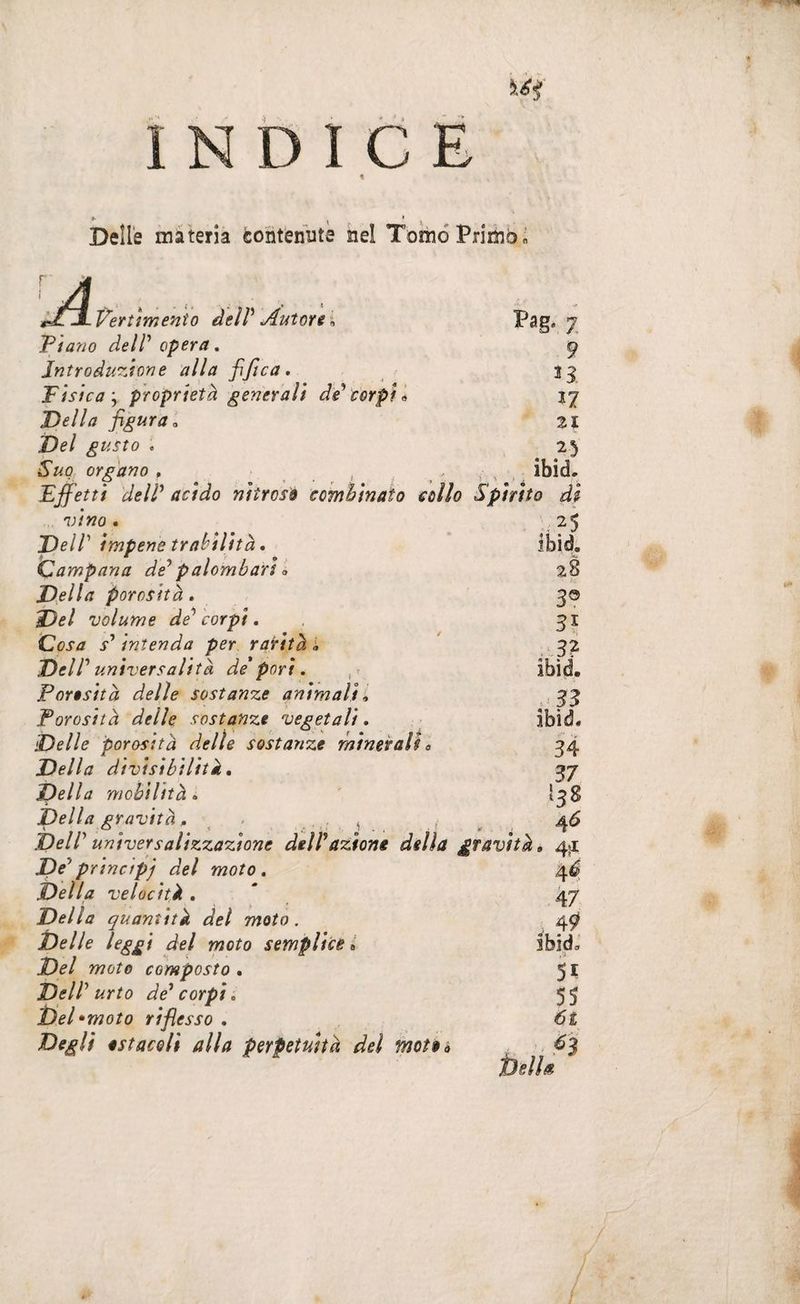 INDICE
Delle materia contenute nel Tomo Primo.
AVertimento dell' Autore. Pag. 7
Piano dell' opera. 9
Introduzione alla fisica. 13
Fisica; proprietà generali de' corpi. 17
Della figura. 21
Del gusto. 25
Suo organo, ibid.
Effetti dell' acido nitroso combinato collo Spirito di
vino. 25
Dell' impenetrabilità. ibid.
Campana de' palombari. 28
Della porosità. 30
Del volume de' corpi. 31
Cosa s' intenda per rarità. 32
Dell' universalità de' pori. ibid.
Porosità delle sostanze animali. 33
Porosità delle sostanze vegetali. ibid.
Delle porosità delle sostanze minerali. 34
Della divisibilità. 37
Della mobilità. 138
Della gravità. 46
Dell' universalizzazione dell'azione della gravità. 41
De' principj del moto. 46
Della velocità. 47
Della quantità del moto. 49
Delle leggi del moto semplice. ibid.
Del moto composto. 51
Dell' urto de' corpi. 55
Del moto riflesso. 61
Degli ostacoli alla perpetuità del moto. 63
Della